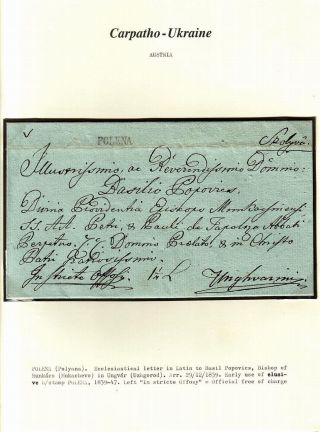 Carpatho-Ukraine
AUSTRIA
POLENA
Szolyva
Illustrissimo, ac Reverendissimo Domino:
Basilio Popovics,
Divina Providentia Episcopo
SS. Petri, & Pauli de Tapolcza Abbati
Perpetuo, Domino Praelato, & in Christo
Patri Gratiosissimo.
In stricto Offos:
Unghvarini
POLENA (Polyana). Ecclesiastical letter in Latin to Basil Popovics, Bishop of
Munkács (Mukachevo) in Ungvár (Uzhgorod). Arr. 25/12/1839. Early use of elusi-
ve h/stamp POLENA, 1839-47. Left "In stricto Offony" = Official free of charge